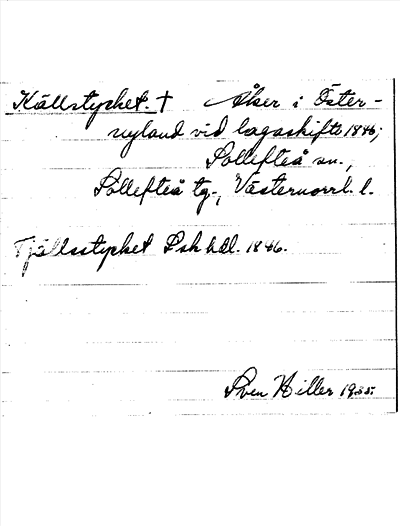 Källstycket. † Åker i Öster-
nyland vid lagaskifte 1846;
Sollefteå sn.,
Sollefteå tg., Västernorrl. l.
Tjällsstycket Lsk hdl. 1846.
Sven Hiller 1935.